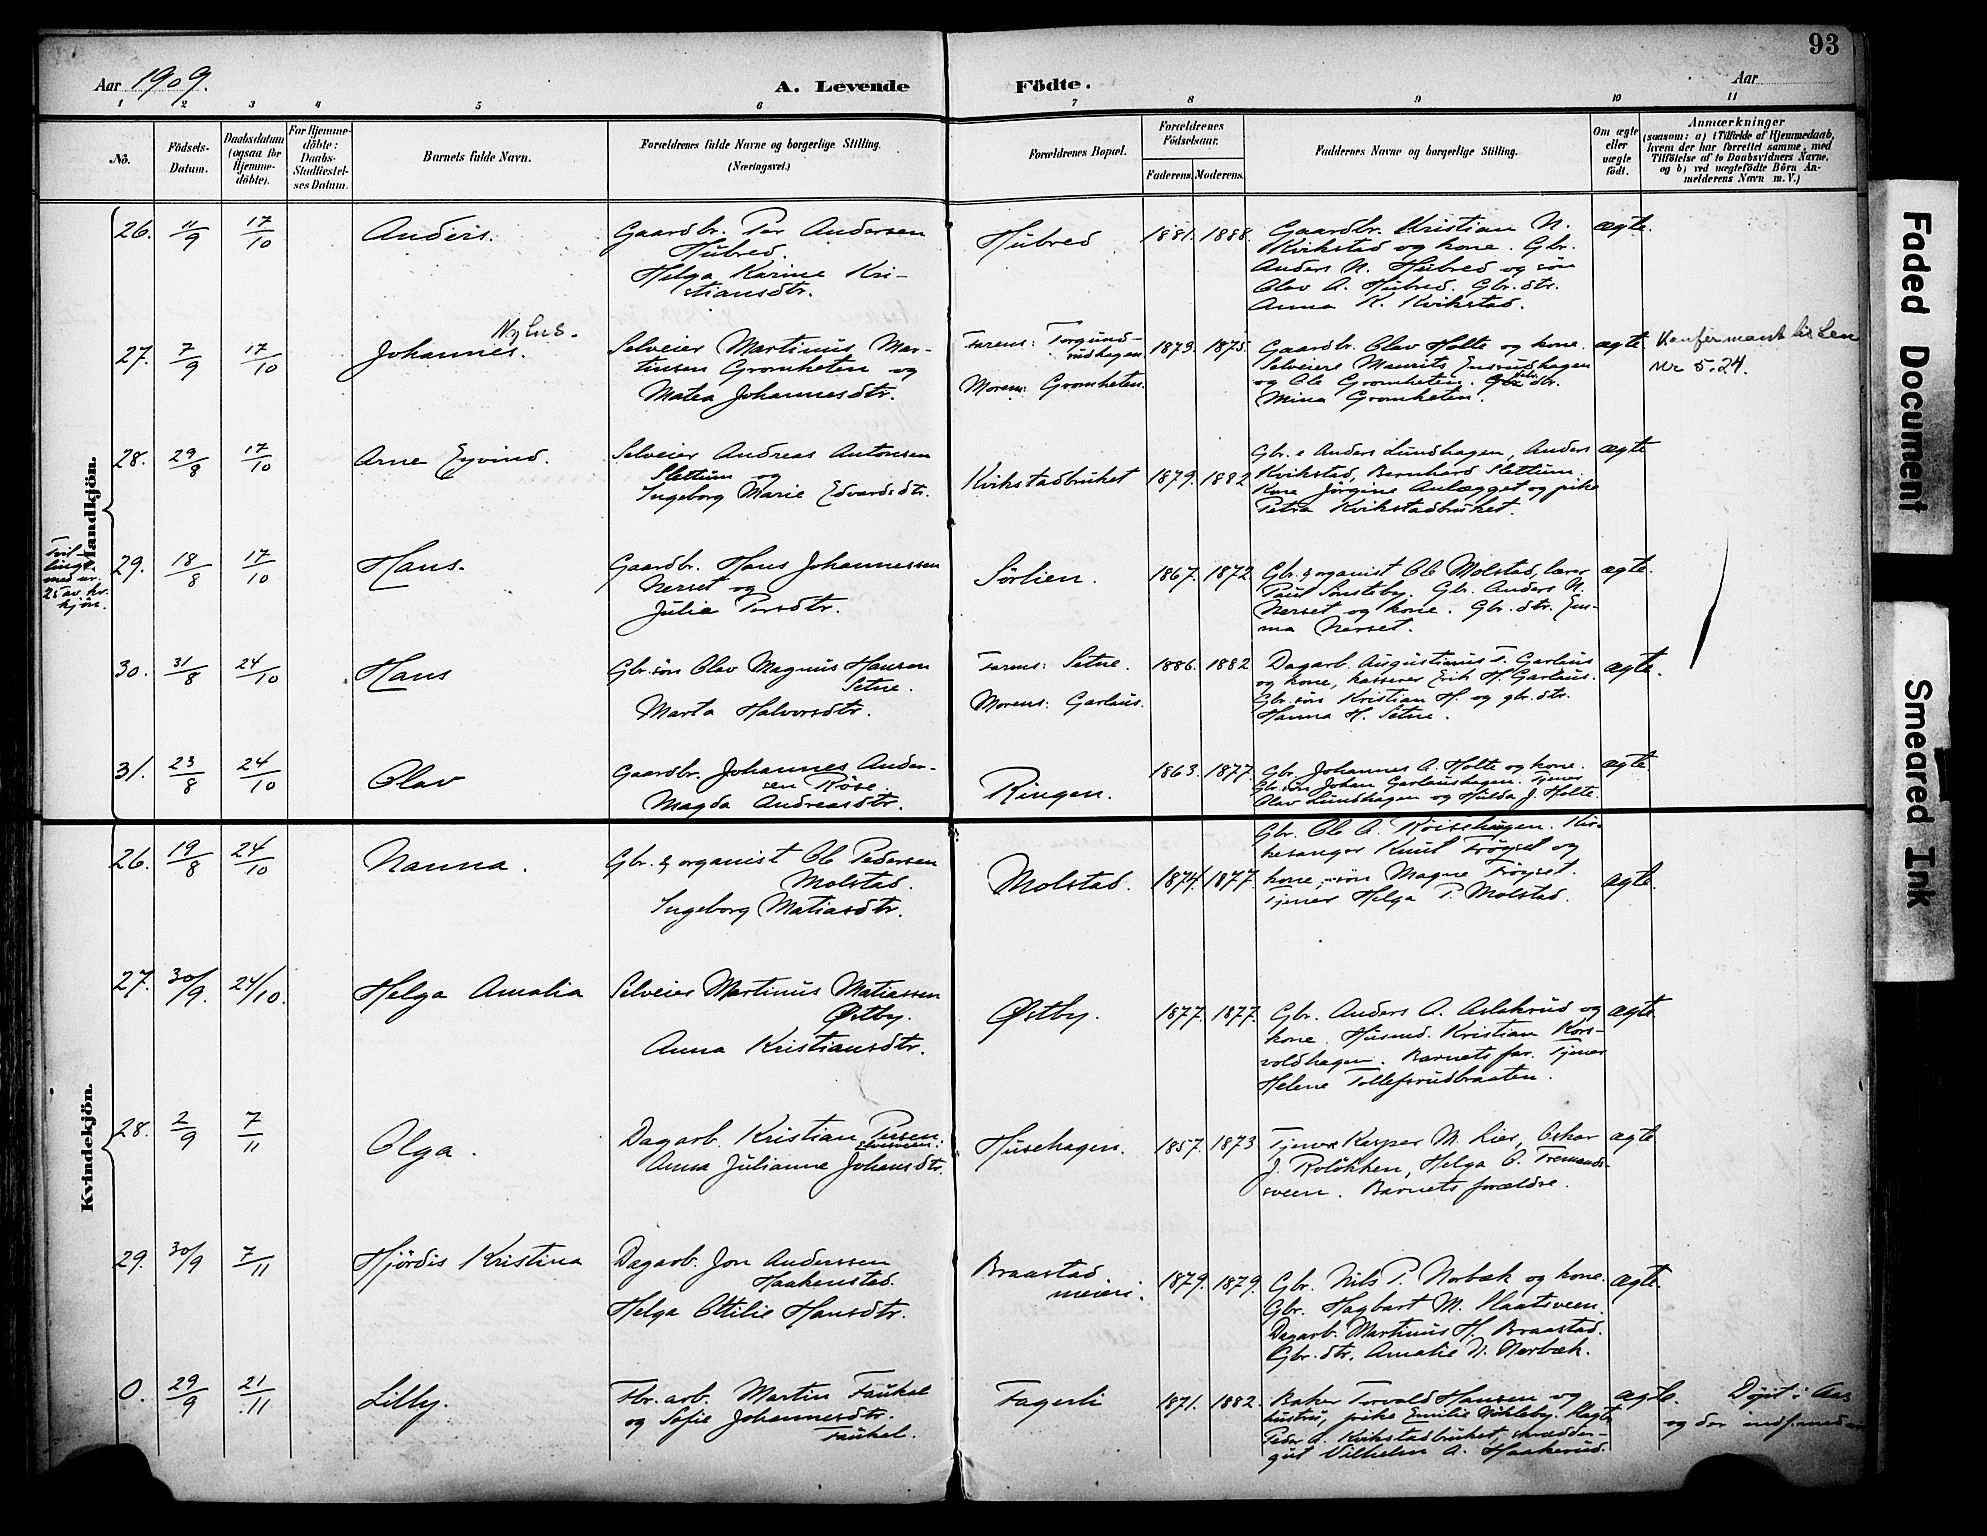 93
Aar 1909.
A. Levende Födte.
Aar
1 2 3 4 5 6 7 8 9 10 11
No.
Födsels-Datum.
Daabsdatum (ogsaa for Hjemme-döbte).
For Hjemme-döbte: Daabs-Stadfæstel-ses Datum.
Barnets fulde Navn.
Forældrenes fulde Navne og borgerlige Stilling.
(Næringsvei.)
Forældrenes Bopæl.
Forældrenes Födselsaar.
Faderens. Moderens.
Faddernes Navne og borgerlige Stilling.
Om ægte eller uægte födt.
Anmærkninger
(saasom: a) i Tilfælde af Hjemmedaab,
hvem der har forrettet samme, med
Tilföielse af to Daabsvidners Navne,
og b) ved uægtefödte Börn An-
melderens Navn m. V.)
Mandkjön.
26. 11/9 17/10 Anders.
Gaardbr. Per Andersen
Hubred.
Helga Karine Kri-
stiansdtr.
Hubred 1881. 1888.
Gaardbr. Kristian N.
Kvikstad og kone. Gbr.
Anders N. Hubred og søn
Olav A. Hubred. Gbr. dtr.
Anna K. Kvikstad.
ægte.
27. 7/9 17/10 Johannes. Nyhus.
Selveier Martinus Mar-
tinsen Gromheten og
Matea Johannesdtr.
Farens: Torgund-
rudhagen
Morens: Gromheten.
1873. 1875.
Gaardbr. Olav Holte og kone.
Selveiere Maurits Ensrudhagen
og Ole Gromheten. dtr.
Mina Gromheten.
ægte
Nr 5.24.
28. 29/8 17/10 Arne Eyvind.
Selveier Andreas Antonsen
Slettum og
Ingeborg Marie Edvardsdtr.
Kvikstadbruket 1879. 1882
Gbr. e Anders Lundhagen, Anders
Kvikstad, Bernhard Slettum.
Kone Jörgine Anlægget og pike
Petra Kvikstadbruket.
ægte
Tvil-
linge
med nr.
25 av kv.
kjön.
29. 18/8 17/10 Hans.
Gaardbr. Hans Johannessen
Nerset og
Julia Persdtr.
Sörlien. 1867. 1872
Gbr. & organist Ole Molstad, lærer
Paul Sønsteby. Gbr. Anders N.
Nerset og kone. Gbr. dtr. Em-
ma Nerset.
ægte.
30. 31/8 24/10 Hans
Gbr. søn Olav Magnus Hansen
Setne.
Marta Halvorsdtr.
Farens: Setne.
Morens: Garlaus.
1886. 1882
Dagarb. Augustinus T. Garlaus
og kone, kasserer Erik H. Garlaus.
Gbr. søn Kristian H. og gbr. dtr.
Hanna H. Setne.
ægte.
31. 23/8 24/10 Olav
Gaardbr. Johannes Ander-
sen Röse.
Magda Andreasdtr.
Ringen. 1863. 1877.
Gbr. Johannes A. Holte og kone.
Gbr. søn Johan Garlaushagen. Tjener
Olav Lundhagen og Hulda J. Holte.
ægte
Kvindekjön.
26. 19/8 24/10 Nanna.
Gbr. & organist Ole Pedersen
Molstad.
Ingeborg Matiasdtr.
Molstad. 1874. 1877
Gbr. Ole A. Köisehagen. Kir-
kesanger Knut Tröyset og
kone, søn Magne Tröyset.
Tjener Helga P. Molstad.
ægte.
27. 30/9. 24/10. Helga Amalia
Selveier Martinus Matiassen
Østby.
Anna Kristiansdtr.
Østby. 1877. 1877.
Gbr. Anders A. Aslakrud og
kone. Husmd. Kristian Kors-
voldhagen. Barnets far. Tjener
Helene Tollefsrudbraaten.
ægte
28. 2/9 7/11 Olga.
Dagarb. Kristian Persen
Anna Julianne Johansdtr.
Husehagen. 1857. 1873
Tjener Kasper M. Lier, Oskar
J. Rolökken, Helga O. Tremands-
sveen. Barnets forældre.
ægte
29. 30/9 7/11 Hjördis Kristina
Dagarb. Jon Anderssen
Haakenstad.
Helga Ottilie Hansdtr.
Braastad
meieri. 1879. 1879.
Gbr. Nils P. Norbæk og kone.
Gbr. Hagbart M. Slaatsveen.
Dagarb. Martinus H. Braastad.
Gbr. dtr. Amalie N. Norbæk.
ægte.
0. 29/9 21/11 Lilly.
Fbr. arb. Martin Faukal
og Sofie Johannesdtr.
Faukal.
Fagerli 1871. 1882.
Baker Torvald Hansen og
hustru, pike Emilie Nökleby.
Peder A. Kvikstadbruket, skrædder-
gut Vilhelm A. Haakerud.
ægte.
Døpt i Aas
og der
Faded Document
Smeared Ink